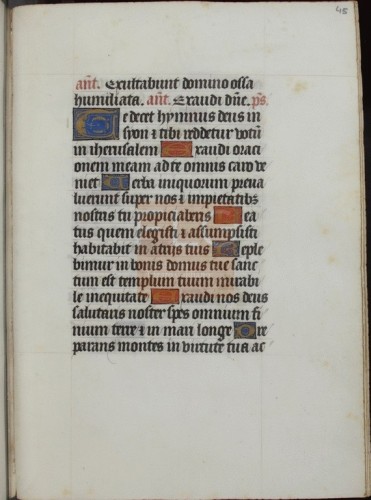 45
añt. Exultabunt domino ossa
humiliata. añt. Exaudi dñe. ps̃.
Te decet hymnus deus in
syon ⁊ tibi reddetur votũ
in iherusalem Exaudi oraci
onem meam ad te omnis caro ve
niet Verba iniquorum preua
luerunt super nos ⁊ impietatibꝫ
nostris tu propiciaberis Bea
tus quem elegisti ⁊ assumpsisti
habitabit in atrijs tuis Reple
bimur in bonis domus tue sanc
tum est templum tuum mirabi
le in equitate Exaudi nos deus
salutaris noster spes omnium fi
nium terre ⁊ in mari longe Pre
parans montes in virtute tua ac